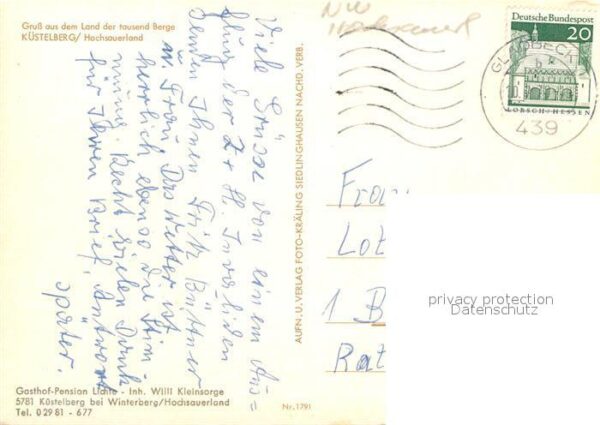 Gruß aus dem Land der tausend Berge
KÜSTELBERG/ Hochsauerland
Viele Grüsse von einem Aus=
flug der Z+H. Invaliden
senden Ihnen Fritz Büttner
u Frau Das Wetter ist
herrlich ebenso die Stim
mung. Recht vielen Dank
für Ihren Brief. Antwort
später.
Gasthof-Pension - Inh. Willi Kleinsorge
5781 Küstelberg bei Winterberg/Hochsauerland
Tel. 0 29 81 - 677
AUFN. U. VERLAG FOTO-KRÄLING SIEDLINGHAUSEN NACHD. VERB.
Nr. 1791
NW
Deutsche Bundespost
20
LORSCH/HESSEN
GLADBECK
439
Frau
Lot
1 B
Rat
privacy protection
Datenschutz